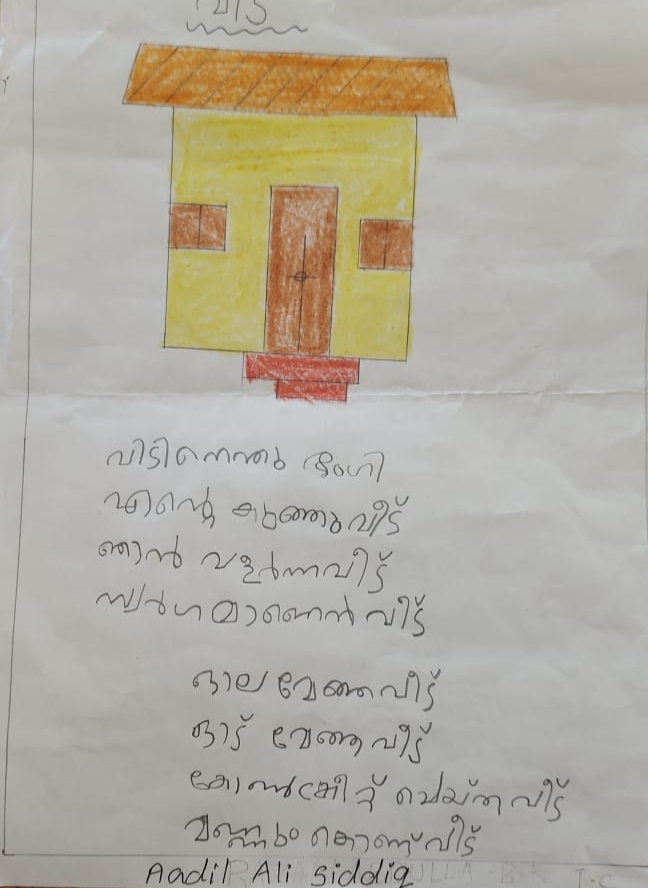 വീട്
വീടിനെന്തു ഭംഗി
എന്റെ കുഞ്ഞുവീട്
ഞാൻ വളർന്നവീട്
സ്വർഗമാണെൻ വീട്
ഓല മേഞ്ഞവീട്
ഓട് മേഞ്ഞ വീട്
കോൺക്രീറ്റ് ചെയ്തവീട്
മണ്ണും കൊണ്ട് വീട്
Aadil Ali siddiq